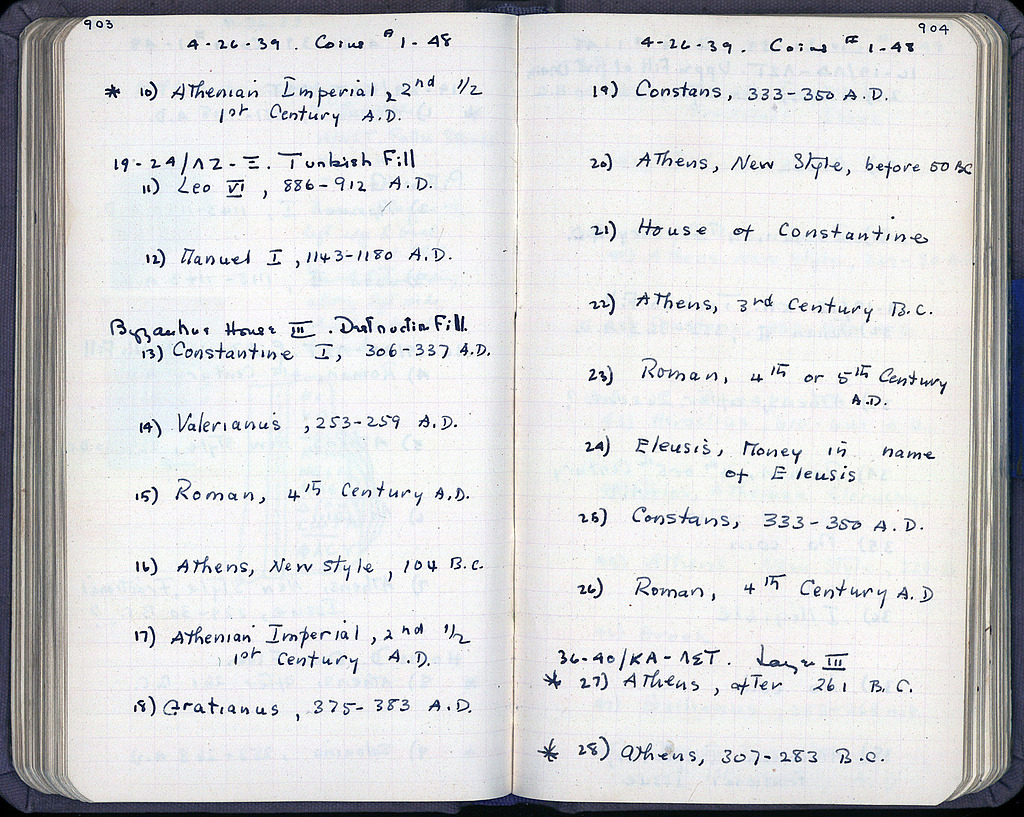 903
4-26-39 Coins #1-48
* 10) Athenian Imperial, 2nd 1/2
1st Century A.D.
19-24/ΛΖ-Ξ. Turkish Fill
11) Leo VI, 886-912 A.D.
12) Manuel I, 1143-1180 A.D.
Byzantine House III. Destruction Fill.
13) Constantine I, 306-337 A.D.
14) Valerianus, 253-259 A.D.
15) Roman, 4th Century A.D.
16) Athens, New Style, 104 B.C.
17) Athenian Imperial, 2nd 1/2
1st Century A.D.
18) Gratianus, 375-383 A.D.
904
4-26-39. Coins #1-48
19) Constans, 333-350 A.D.
20) Athens, New Style, before 50 BC
21) House of Constantine
22) Athens, 3rd Century B.C.
23) Roman, 4th or 5th Century
A.D.
24) Eleusis, Money in name
of Eleusis
25) Constans, 333-350 A.D.
26) Roman, 4th Century A.D
36-40/ΚΑ-ΛΣΤ. Layer III
* 27) Athens, after 261 B.C.
* 28) Athens, 307-283 B.C.